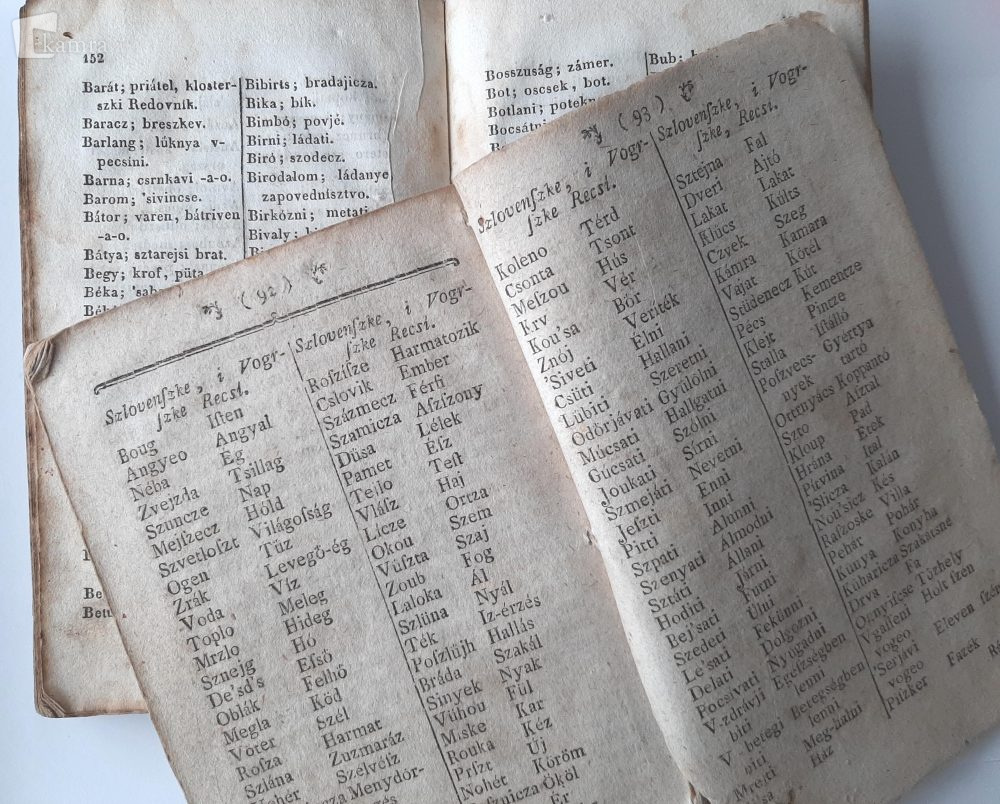 kamra
152
Barát; priátel, kloster-
szki Redovník.
Baracz; breszkev.
Barlang; lúknya v-
pecsini.
Barna; csrnkavi -a-o.
Barom; 'sivincse.
Bátor; varen, bátriven
-a-o.
Bátya; sztarejsi brat.
Begy; krof, püta
Béka;
Bibirts; bradajicza.
Bika; bík.
Bimbó; povjé.
Birni; ládati.
Biró; szodecz.
Birodalom; ládanye
zapovednísztvo.
Birkózni; metati
Bivaly;
Bosszuság; zámer.
Bot; oscsek, bot.
Botlani;
Bub;
( 92 )
Szlovenſzke, i Vogr-
ſzke Recsi.
Boug Iſten
Angyeo Angyal
Néba Eg
Zvejzda Tsillag
Szuncze Nap
Mejſzecz Hóld
Szvetloſzt Világoſság
Ogen Tüz
Zrák Levegő-ég
Voda Víz
Toplo Meleg
Mrzlo Hideg
Sznejg Hó
De'sd's Eſső
Oblák Felhő
Megla Köd
Voter Szél
Rofza Harmat
Szlána Zuzmaráz
Szlovenſzke, i Vogr-
ſzke Recsi.
Roſzíſze Harmatozik
Cslovik Ember
Százmecz Férfi
Szamicza Aſzſzony
Düsa Lélek
Pamet Éſz
Tejlo Teſt
Vláſz Haj
Licze Ortza
Okou Szem
Vüſzta Szaj
Zoub Fog
Laloka Ál
Szlüna Nyál
Ték Iz-érzés
Poſzlüjh Hallás
Bráda Szakál
Sinyek Nyak
Vühou Fül
Miske Kar
Rouka Kéz
Prſzt Új
Nohét Köröm
( 93 )
Szlovenſzke, i Vogr-
ſzke Recsi.
Koleno Térd
Csonta Tsont
Meſzou Hús
Krv Vér
Kou'sa Bőr
Znój Veríték
'Siveti Elni
Csüti Hallani
Lübiti Szeretni
Odörjávati Gyülőlni
Múcsati Hallgatni
Gúcsati Szólni
Joukati Sírni
Szmejáti Nevetni
Jeſzti Enni
Pítti Inni
Szpati Alunni
Szenyati Almodni
Sztáti Állani
Hoditi Járni
Bej'sati Futni
Szederi Ülni
Le'sati Fekünni
Delati Dolgozni
Pocsivati Nyúgadni
V-zdrávji Egéſzségben
biti lenni
Betegségben
lenni
Meg-halni
Ház
Szlovenſzke, i Vogr-
ſzke, Recsi.
Sztejna Fal
Dveri Ajtó
Lakat Lakat
Klücs Kúlts
Czvek Szeg
Kámra Kamara
Vajat Kötél
Stüdenecz Kút
Pécs Kementze
Klejt Pintze
Stalla Iſtálló
Poſzvecs- Gyértya
nyek tartó
Ortmyács Koppantó
Szto Aſztal
Kloup Pad
Hrána Etek
Pitvina Ital
'Slicza Kalán
Nou'sicz Kés
Raſzoske Villa
Pehár Pohár
Künya Konyha
Küharicza Szakátsné
Drva Fa
Ogenyiſcse Tüzhely
Vgaſſeni Holt ſzén
vogeo
'Serjávi Eleven ſzén
vogeo
Piſzker Fazék